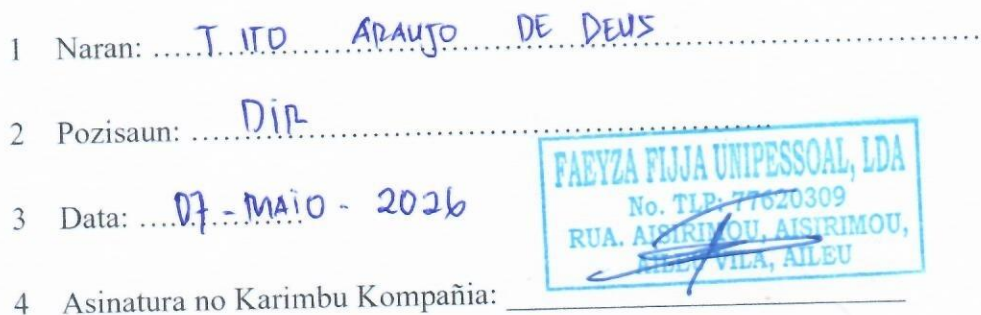 1 Naran: ..... TITO ARAUJO DE DEUS
2 Pozisaun: ..... DIR
3 Data: .... 07 - MAIO - 2026
FAEYZA FIJJA UNIPESSOAL, LDA
No. TLP: 77620309
RUA. AISIRIMOU, AISIRIMOU,
AILEU VILA, AILEU
4 Asinatura no Karimbu Kompañia: